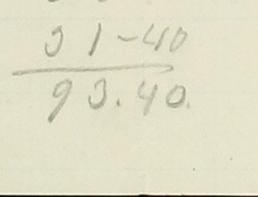 31-40
93.40